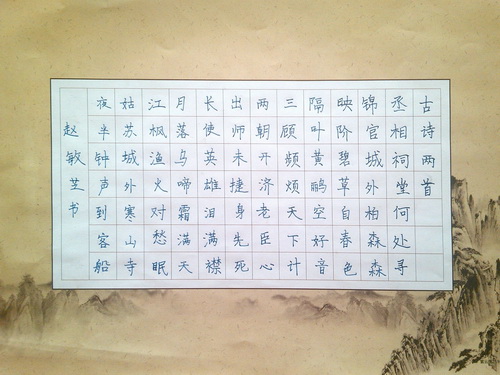 古诗两首
丞相祠堂何处寻
锦官城外柏森森
映阶碧草自春色
隔叶黄鹂空好音
三顾频烦天下计
两朝开济老臣心
出师未捷身先死
长使英雄泪满襟
月落乌啼霜满天
江枫渔火对愁眠
姑苏城外寒山寺
夜半钟声到客船
赵敏芝书